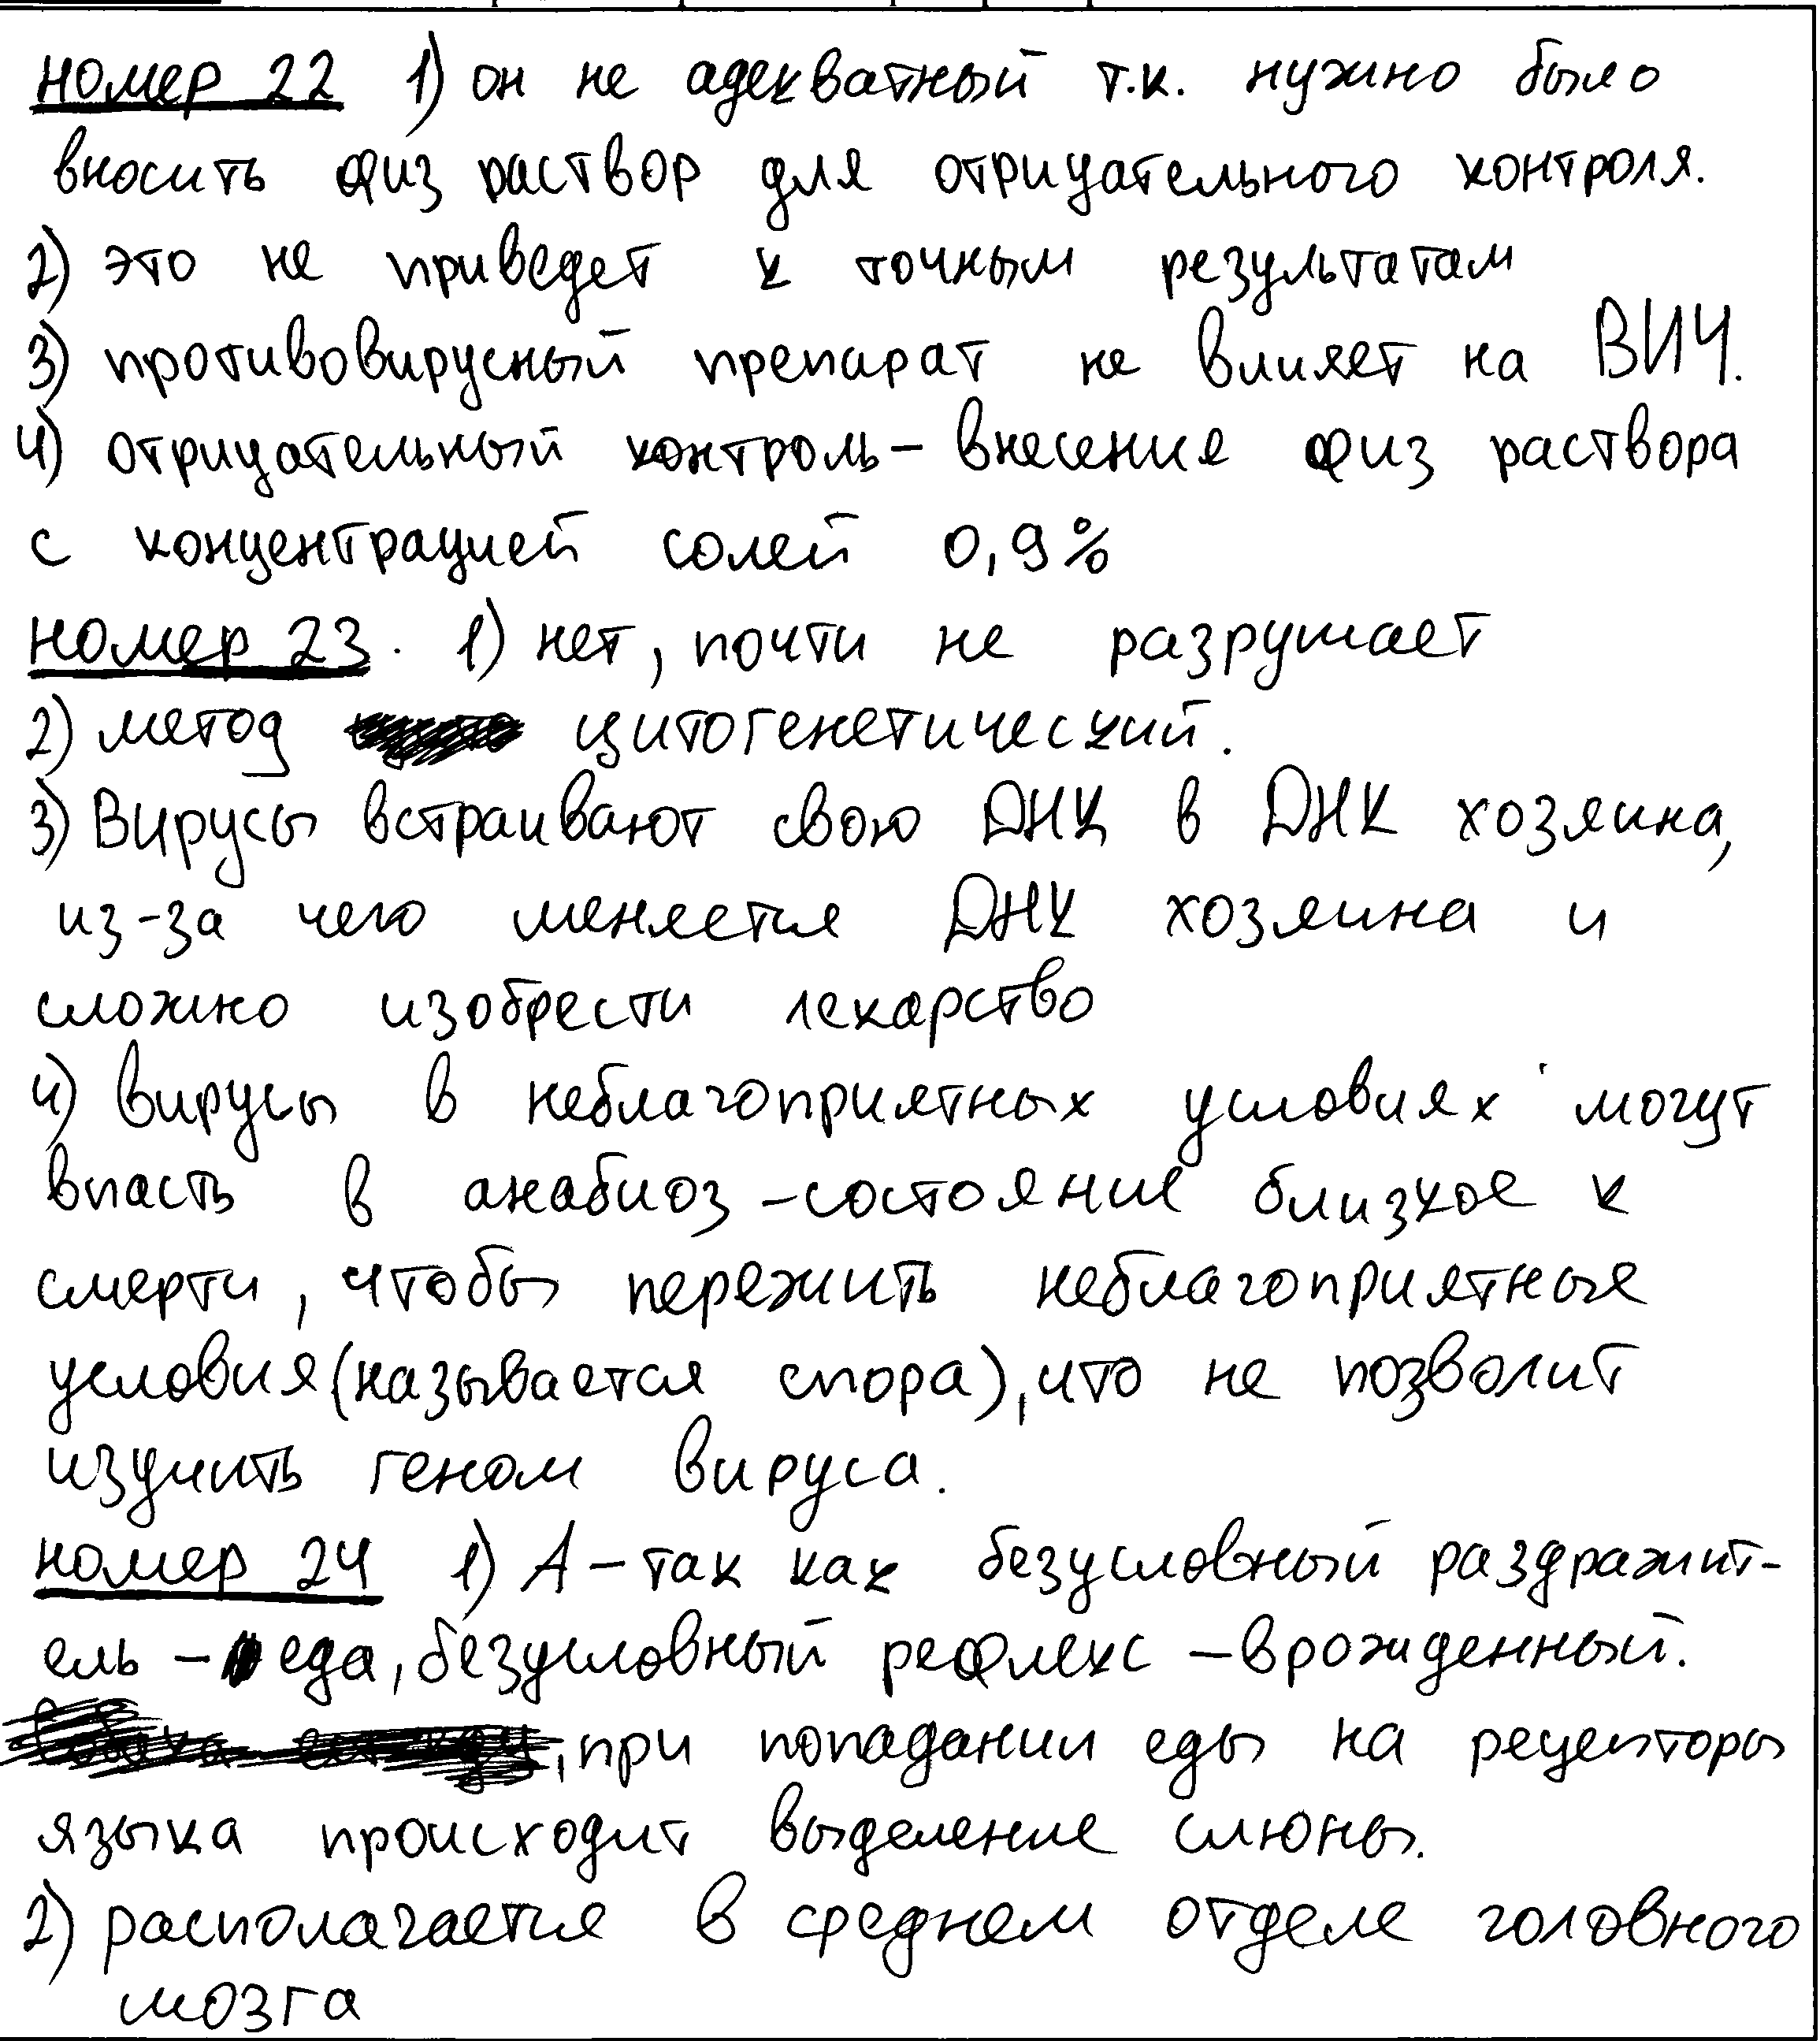 номер 22 1) он не адекватный т.к. нужно было
вносить физ раствор для отрицательного контроля.
2) это не приведет к точным результатам
3) противовирусный препарат не влияет на ВИЧ.
4) отрицательный контроль – внесение физ раствора
с концентрацией солей 0,9%
номер 23. 1) нет, почти не разрушает
2) метод цитогенетический.
3) Вирусы встраивают свою ДНК в ДНК хозяина,
из-за чего меняется ДНК хозяина и
сложно изобрести лекарство
4) вирусы в неблагоприятных условиях могут
впасть в анабиоз – состояние близкое к
смерти, чтобы пережить неблагоприятные
условия (называется спора), что не позволит
изучить геном вируса.
номер 24 1) А – так как безусловный раздражит-
ель – еда, безусловный рефлекс – врожденный.
, при попадании еды на рецепторы
языка происходит выделение слюны.
2) располагается в среднем отделе головного
мозга